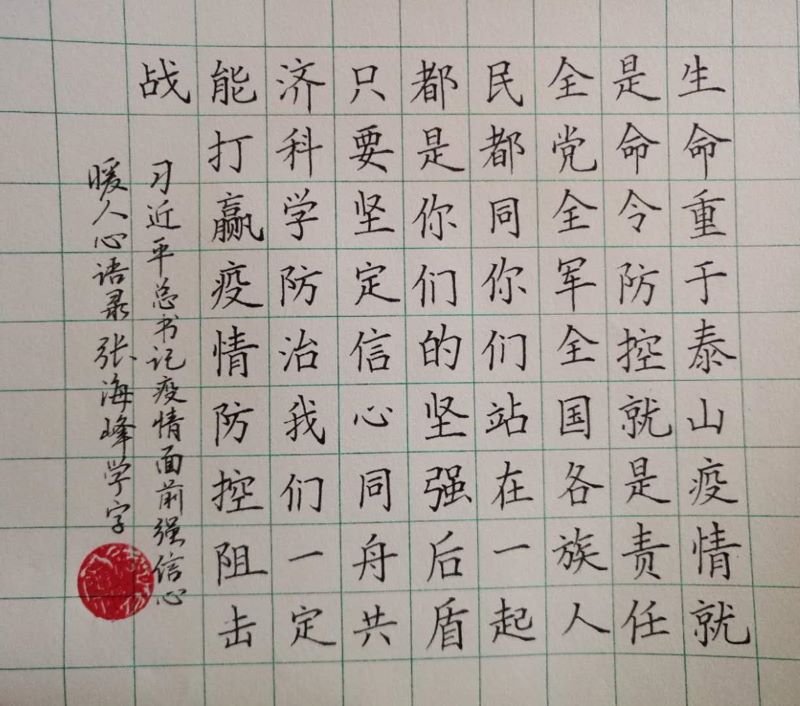 生命重于泰山疫情就
是命令防控就是责任
全党全军全国各族人
民都同你们站在一起
都是你们的坚强后盾
只要坚定信心同舟共
济科学防治我们一定
能打赢疫情防控阻击
战
习近平总书记疫情面前强信心
暖人心语录张海峰学字